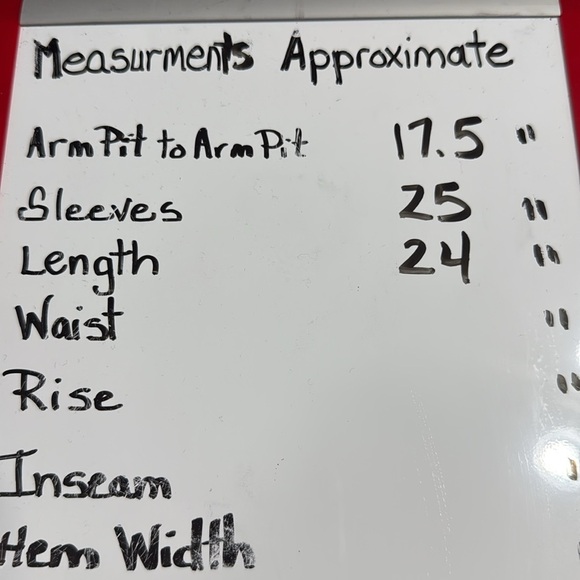 Measurments Approximate
Arm Pit to Arm Pit 17.5 "
Sleeves 25 "
Length 24 "
Waist "
Rise "
Inseam "
Hem Width